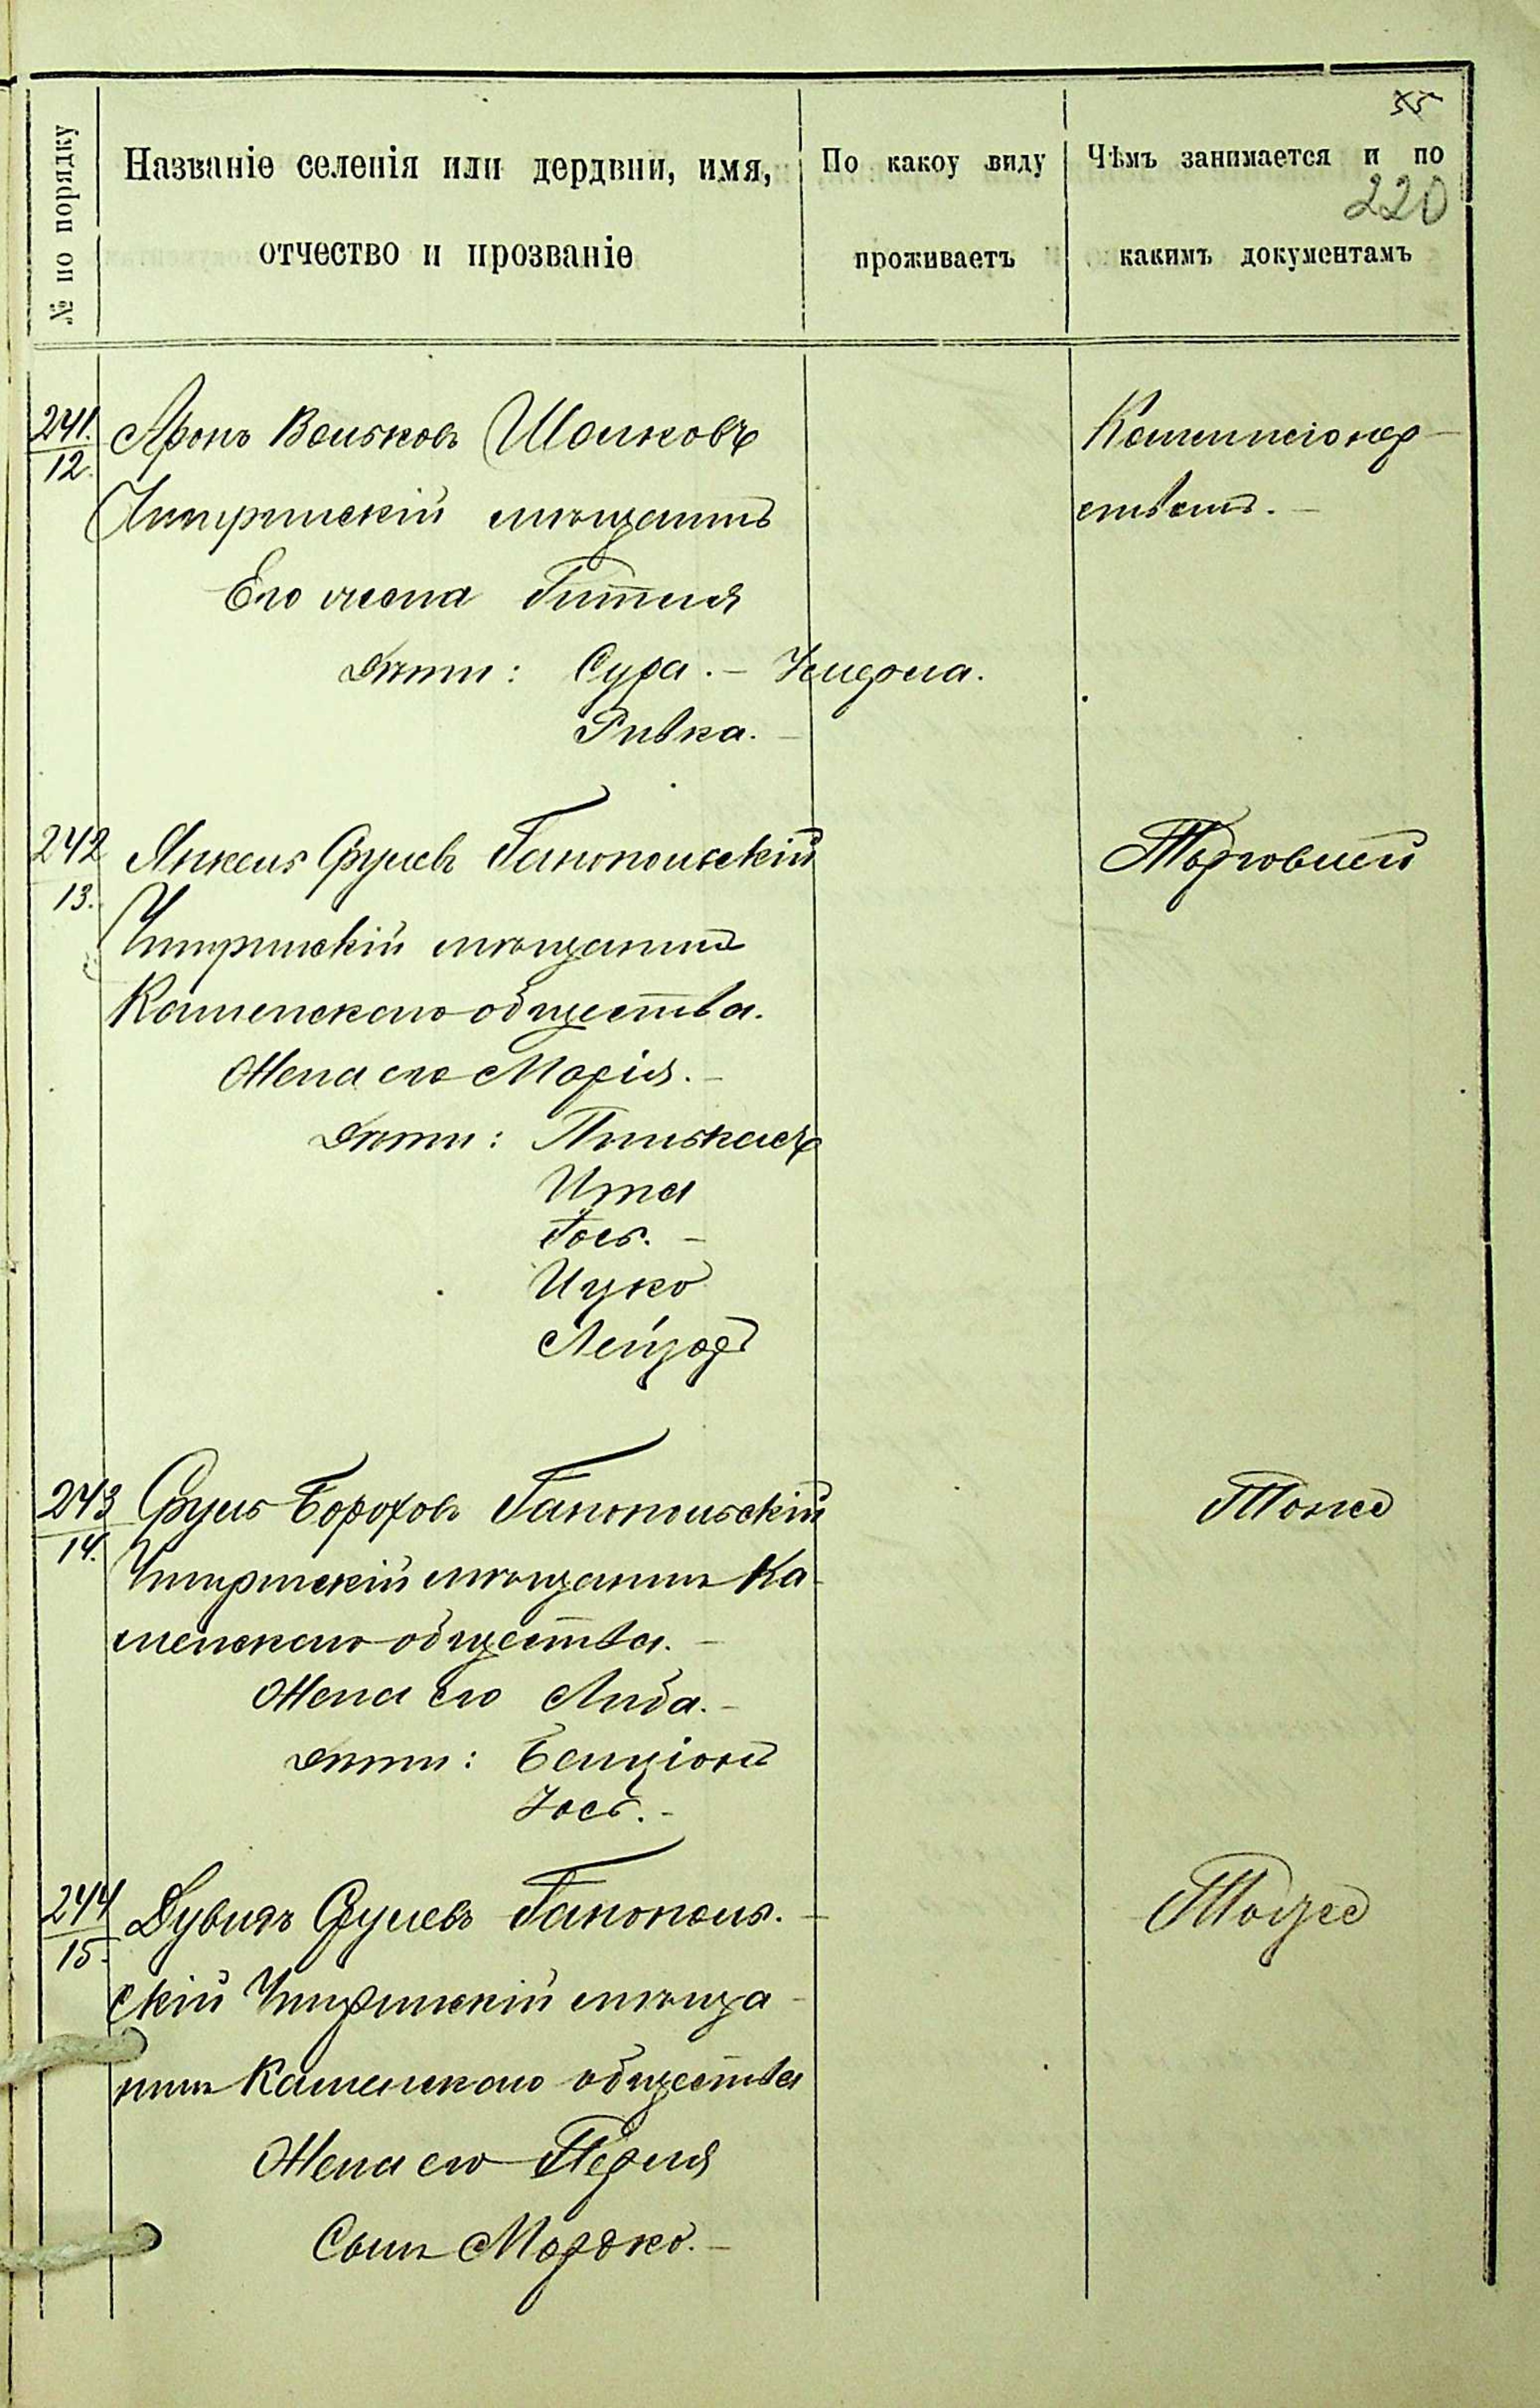 55
№ по порядку
Названіе селенія или дердвни, имя,
отчество и прозваніе
По какоу виду
проживаетъ
Чѣмъ занимается и по
какимъ документамъ
220
241.
12.
Аронъ Вольковъ
мѣщанинъ
Его жена Гитля
Дѣти: Сура. — Умерла.
Ривка. —
Коммиссіонер-
ствомъ. —
242
13.
Янкель Сруль Ганопольскій
Чигринскій мѣщанинъ
Каменскаго общества.
Жена его Марія. —
Дѣти: Пинькасъ
Ита
Іось. —
Ицко
Лейзоръ
Торговлей
243
14.
Сруль Бороховъ Ганопольскій
Чигринскій мѣщанинъ Ка-
менскаго общества. —
Жена его Либа. —
Дѣти: Бенціонъ
Іось. —
Тоже
244
15.
Дувидъ Срулевъ Ганополь. —
скій Чигринскій мѣща-
нинъ Каменскаго общества
Жена его Перля
Сынъ Мордко. —
Тоже